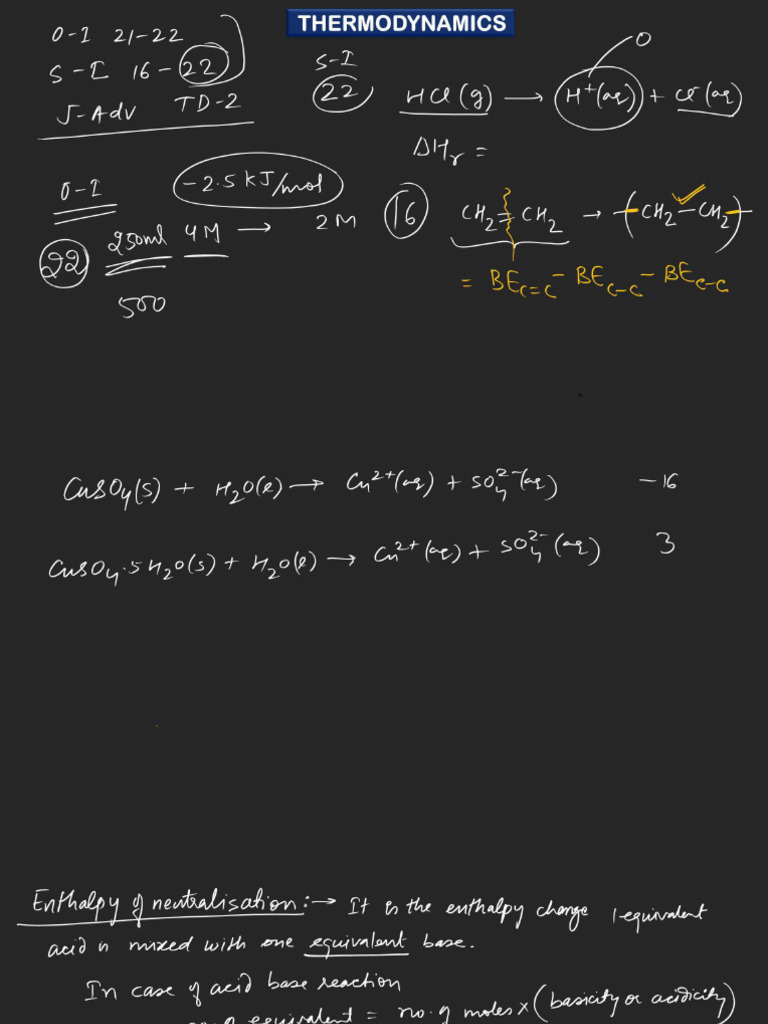 THERMODYNAMICS
O-I 21-22
S-I 16-22
J-Adv TD-2
S-I
22 HCl(g) → H⁺(aq) + Cl⁻(aq)
O
ΔHr =
O-I
-2.5 kJ/mol
22 250ml 4M → 2M
500
16 CH₂=CH₂ → (CH₂-CH₂)
= BE C=C - BE C-C - BE C-C
CuSO₄(s) + H₂O(l) → Cu²⁺(aq) + SO₄²⁻(aq) -16
CuSO₄.5H₂O(s) + H₂O(l) → Cu²⁺(aq) + SO₄²⁻(aq) 3
Enthalpy of neutralisation:→ It is the enthalpy change 1-equivalent
acid is mixed with one equivalent base.
In case of acid base reaction
no. of equivalent = no. of moles x (basicity or acidicity)